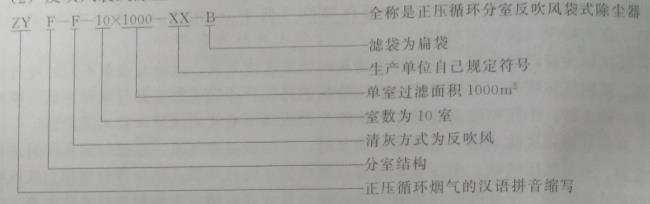 ZY F—F—10×1000—XX—B
全称是正压循环分室反吹风袋式除尘器
滤袋为扁袋
生产单位自己规定符号
单室过滤面积1000m²
室数为10室
清灰方式为反吹风
分室结构
正压循环烟气的汉语拼音缩写